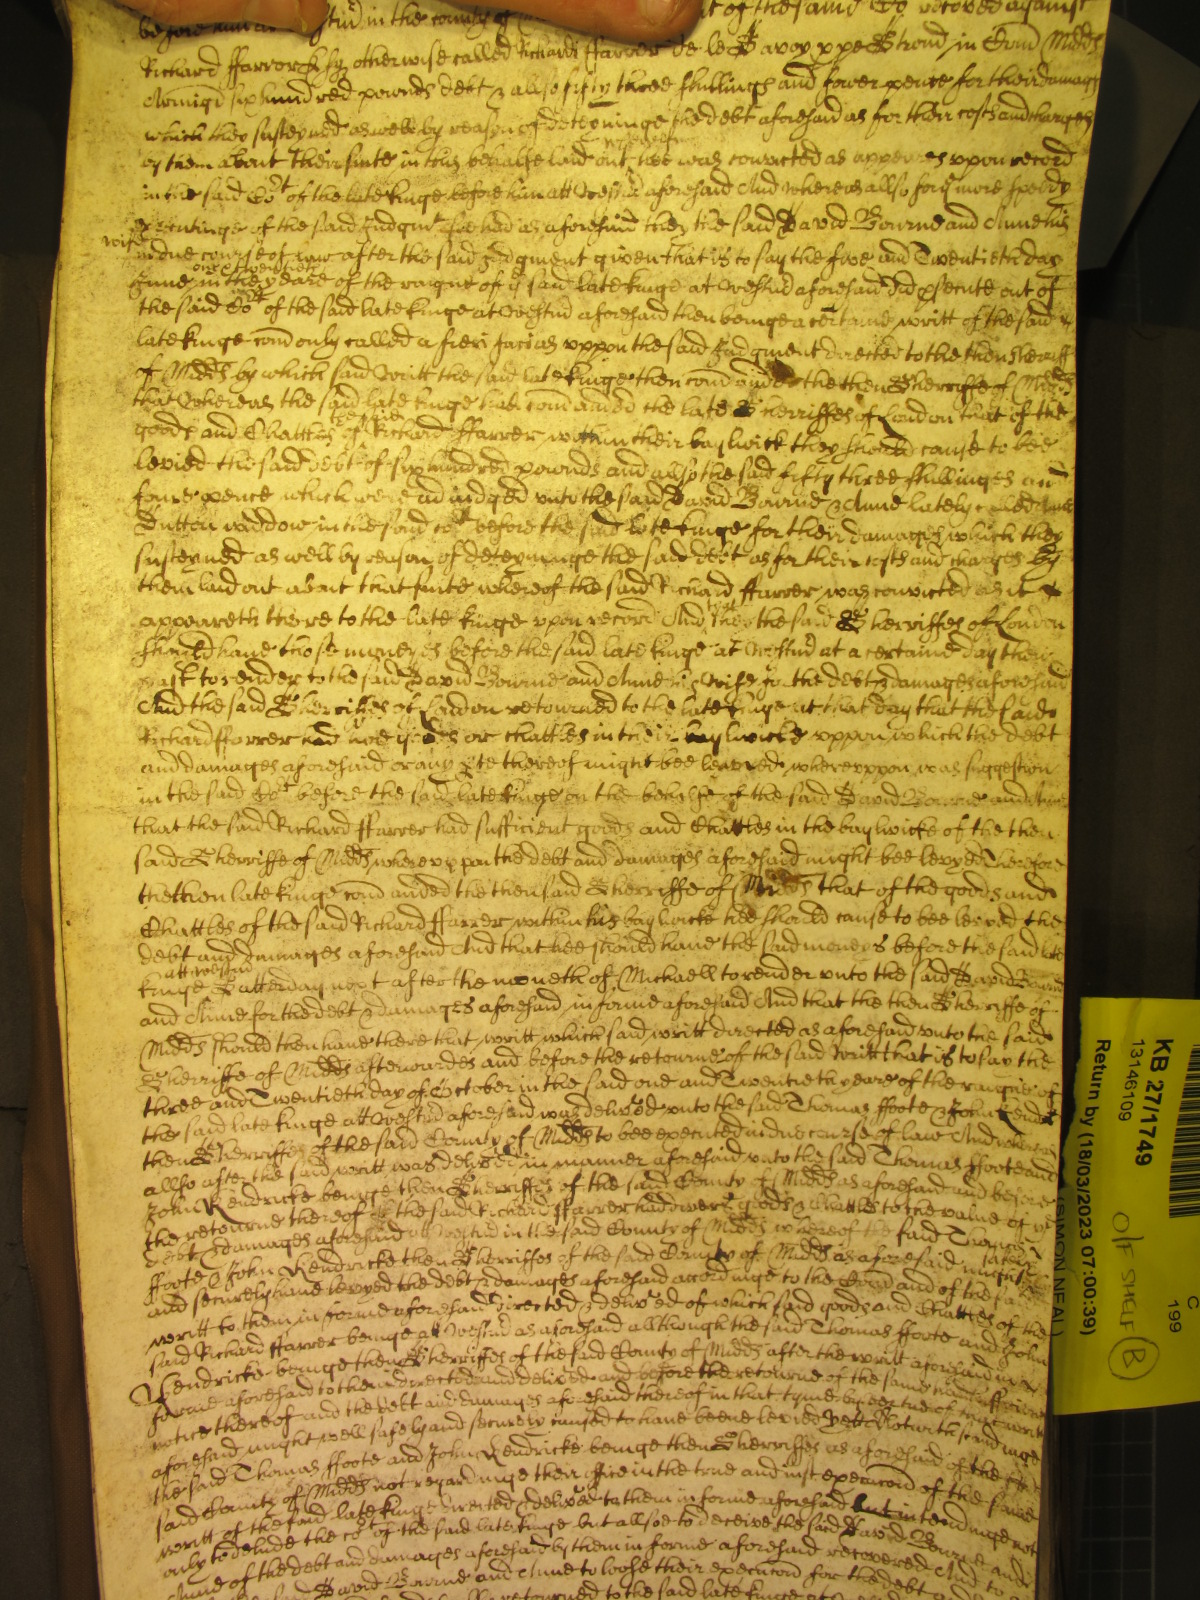 Richard ffarrer by otherwise called Richard ffarrer de le Savoy ppe Strond in Com Midds
Armigr six hundred pounds debt & allso fifty three shillings and fower pence for their damages
which they susteyned as well by reason of deteyninge the debt aforesaid as for their costs and charges
by them about their suite in this behalfe laid out hee was convicted as appeares uppon record
in the said Cort of the late kinge before him att Westmr aforesaid And whereas allso for more speedy
of the said Judgmt soe had as aforesaid they the said David Bourne and Anne his
wife
in due course of law after the said Judgment given that is to say the five and Twentieth day
one & twentieth
June in the yeare of the raigne of ye said late kinge at Westmr aforesaid did psecute out of
the said Cort of the said late kinge at Westmr aforesaid then beinge a certaine writt of the said
late kinge comonly called a fieri facias uppon the said Judgment directed to the then Sheriff
of Midds by which said writt the said late kinge then comanded the then Sherriffe of Midds
that whereas the said late kinge had comanded the late Sherriffes of London that of the
goods and Chattles of the said Richard ffarrer within their baylwick they should cause to bee
levied the said debt of six hundred pownds and allso the said fifty three shillinges and
foure pence which were adiudged unto the said David Bourne & Anne lately called Anne
Dutton widdow in the said Cort before the said late kinge for their damages which they
susteyned as well by reason of deteyninge the said debt as for their costs and charges by
them laid out about that suite whereof the said Richard ffarrer was convicted as it
appeareth there to the late kinge upon record And that the said Sherriffes of London
should have those moneyes before the said late kinge at Westmr at a certaine day then
past to render to the said David Bourne and Anne his wife for the debt & damages aforesaid
And the said Sherriffes of London retourned to the late kinge at that day that the said
Richard ffarrer had noe goods or chattles in their baylwicke uppon which the debt
and damages aforesaid or any pte thereof might bee leavied whereuppon was suggestion
in the said Cort before the said late kinge on the behalfe of the said David Bourne and Anne
that the said Richard ffarrer had sufficient goods and Chattles in the baylwicke of the then
said Sherriffe of Midds whereuppon the debt and damages aforesaid might bee levyed Therefore
the then late kinge comanded the then said Sherriffe of Midds that of the goods and
Chattles of the said Richard ffarrer within his baylwicke hee should cause to bee levyed the
debt and damages aforesaid And that hee should have the said moneys before the said late
att Westmr
kinge Satterday next after the moneth of Michaell to render unto the said David Bourne
and Anne for the debt & damages aforesaid in forme aforesaid And that the then Sherriffe of
Midds should then have there that writt which said writt directed as aforesaid unto the said
Sherriffe of Midds afterwardes and before the retourne of the said writt that is to say the
three and Twentieth day of October in the said one and Twentieth yeare of the raigne of
the said late kinge att Westmr aforesaid was delivred unto the said Thomas ffoote & John Kendricke
then Sherriffes of the said County of Midds to bee executed in due course of law And whereas
allso after the said writt was delivred in manner aforesaid unto the said Thomas ffoote and
John Kendricke beinge then Sherriffes of the said County of Midds as aforesaid and before
the retourne thereof the said Richard ffarrer had divers goods & chattles to the value of ye
debt & damages aforesaid att Westmr in the said County of Midds whereof the said Thomas
ffoote & John Kendricke then Sherriffes of the said County of Midds as aforesaid might safely
and securely have levyed the debt & damages aforesaid accordinge to the and of the said
writt to them in forme aforesaid directed & delivred of which said goods and Chattles of the
said Richard ffarrer beinge att Westmr as aforesaid allthough the said Thomas ffoote and John
Kendricke beinge then Sherriffes of the said County of Midds after the writt aforesaid in
forme aforesaid to them directed and delivred and before the retourne of the same had sufficient
notice thereof and the debt and damages aforesaid thereof in that tyme by vertue of that writt
aforesaid might well safely and securely have beene levied Yet Notwithstandinge
the said Thomas ffoote and John Kendricke beinge then Sherriffes as aforesaid of the
said County of Midds not regardinge their office in the true and iust execucon of the same
writt of the said late kinge directed & delivred to them in forme aforesaid but intendinge not
only to delude the Cort of the said late kinge but allsoe to deceive the said David Bourne and
Anne of the debt and damages aforesaid by them in forme aforesaid recovered And to
David Bourne and Anne to loose their execucon for the debt
retourned to the said late kinge
KB 27/1749
13146109
Return by (18/03/2023 07:00:39)
(SIMON NEAL)
C
199
O/F SHELF
B